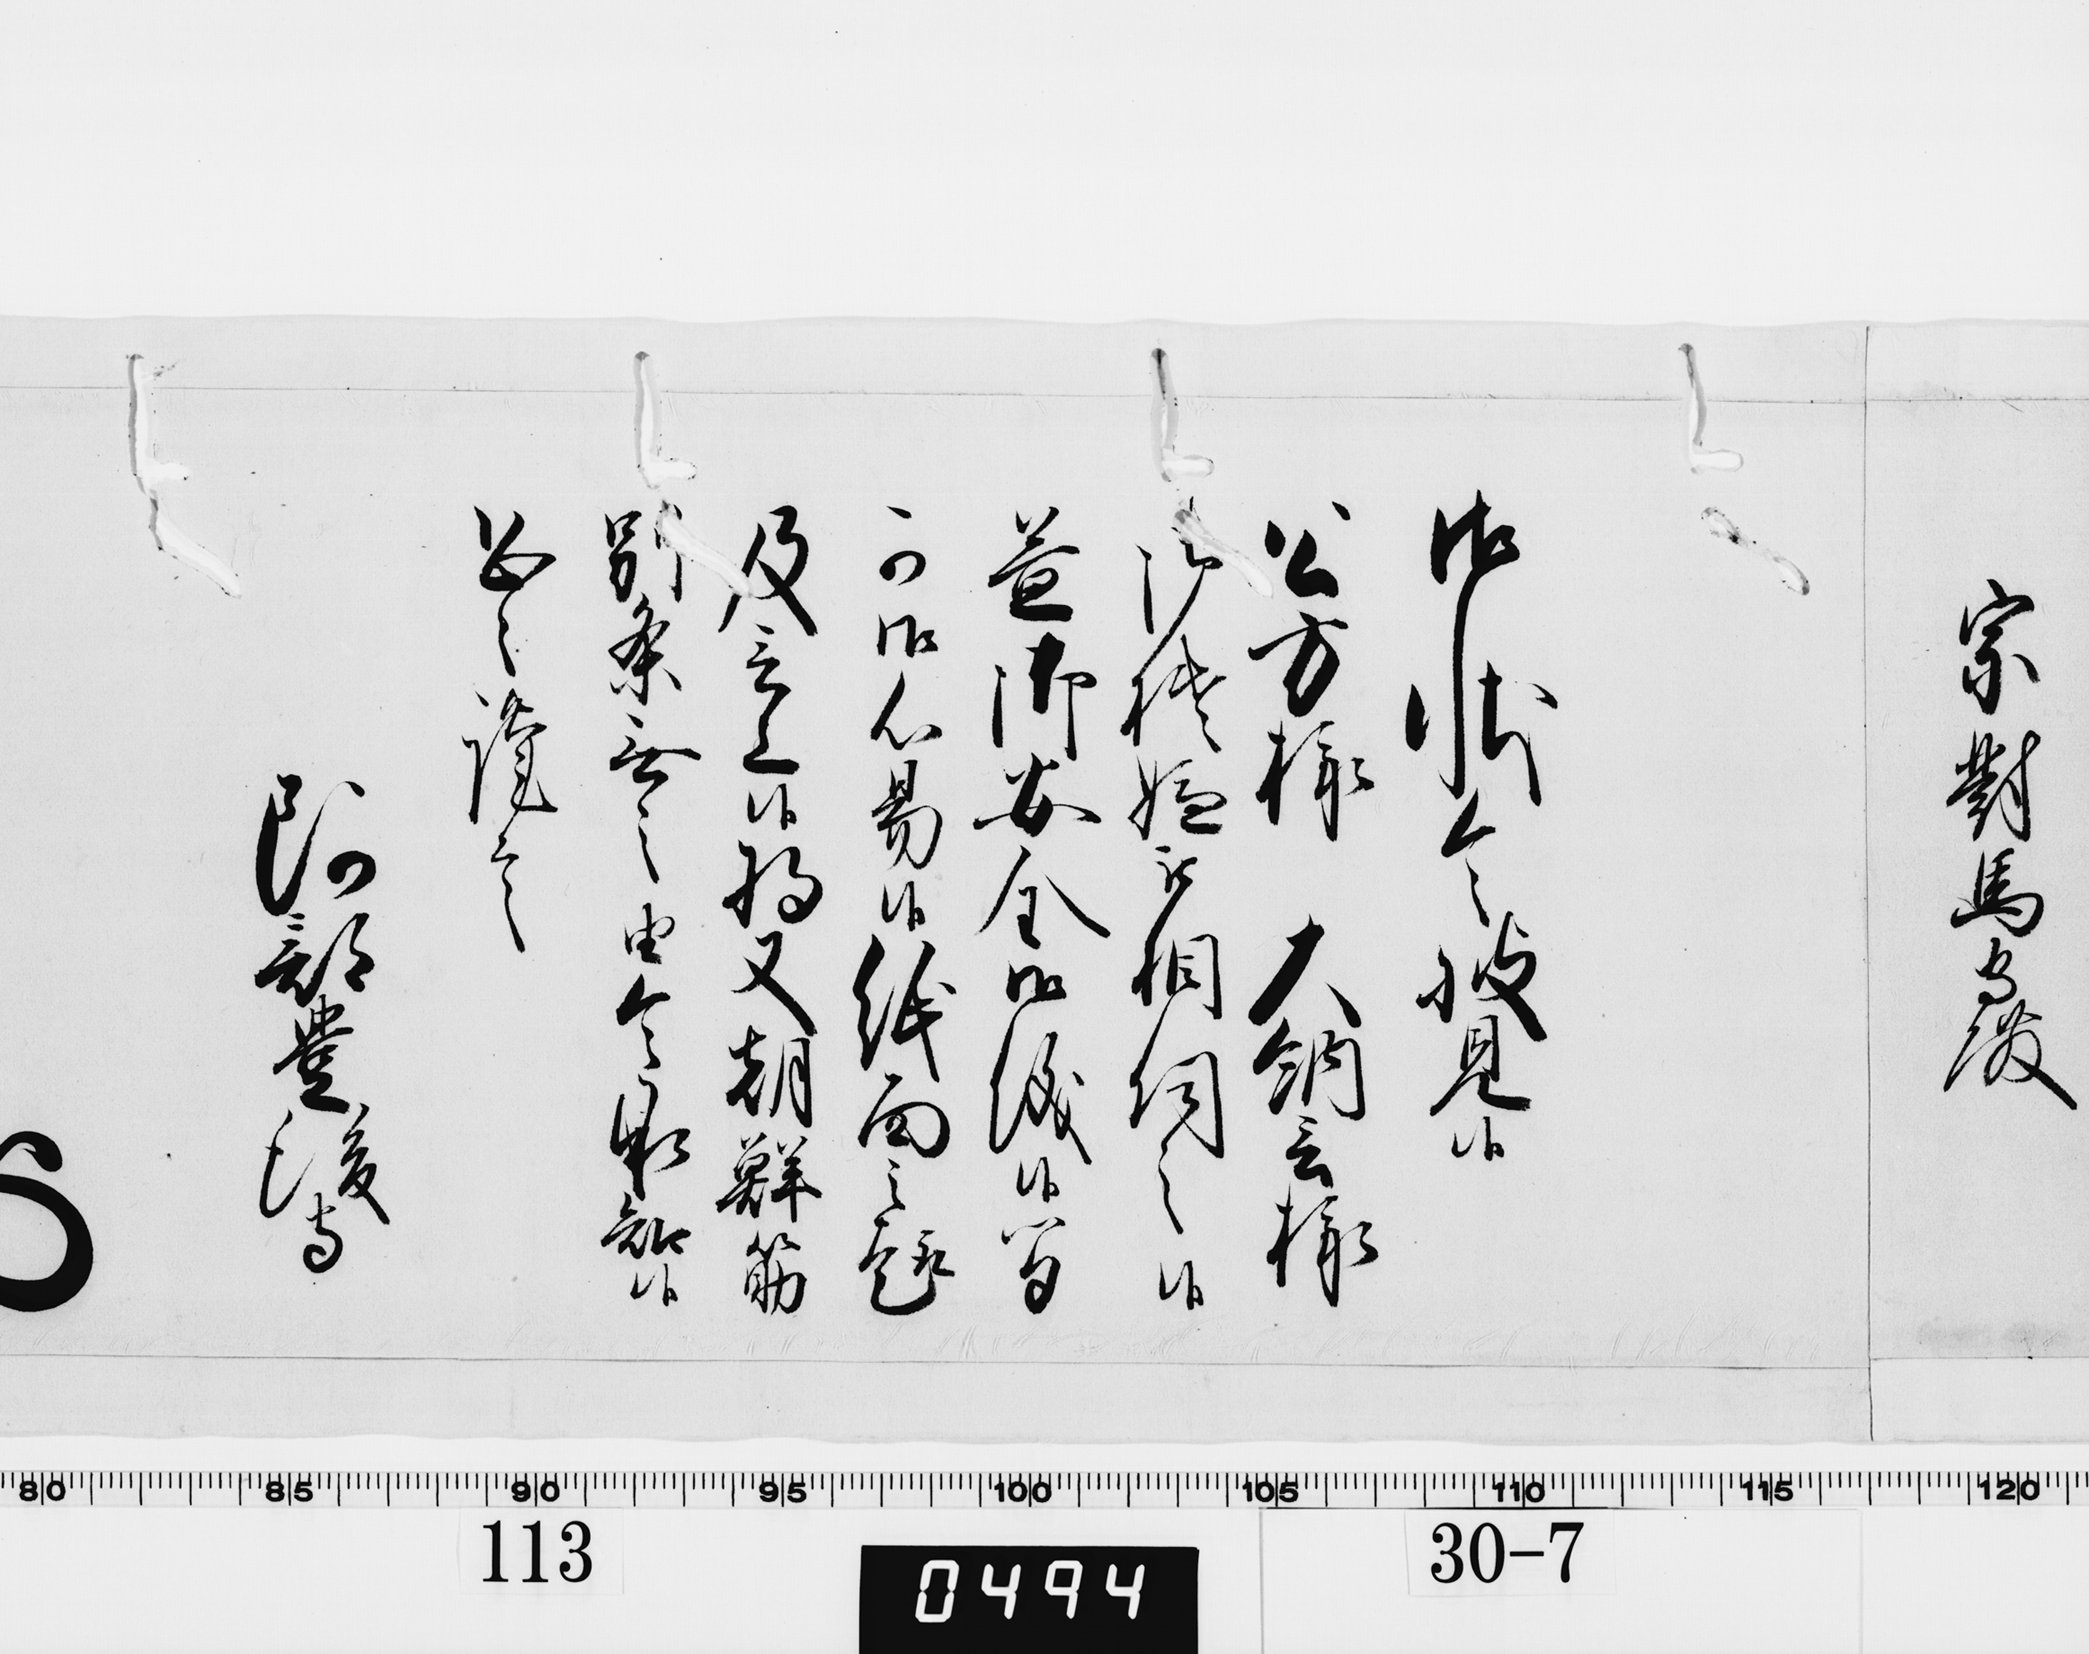 宗對馬守殿
御状令披見候
公方様 大納言様
御機嫌被相伺之候
益御安全御儀候間
可御心易候紙面之趣
及言上候将又朝鮮筋
別条無之由令承知候
恐々謹言
阿部豊後守
80 85 90 95 100 105 110 115 120
113
30-7
0494